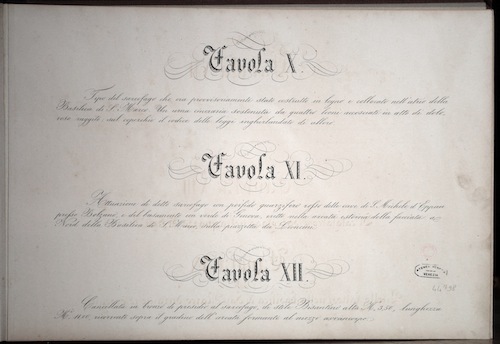 Tavola X.
Tipo del sarcofago che era provvisoriamente stato costrutto in legno e collocato nell'atrio della
Basilica di S. Marco. Un urna cineraria sostenuta da quattro leoni accosciati in atto di dolo,
core sul coperchio il codice delle leggi inghirlandato di allori.
Tavola XI.
Attuazione di detto sarcofago con porfido quarzifero rosso delle cave di S. Michele d'Eppan
presso Bolzano e del basamento in verde di Genova, nella arcata esterna della facciata a
Nord della Basilica di S. Marco, sulla piazzetta dei Leoncini.
Tavola XII.
Cancellata in bronzo di presidio al sarcofago, di stile Bisantino alta M. lunghezza
M. sopra il gradino dell' arcata formante al mezzo
VENEZIA